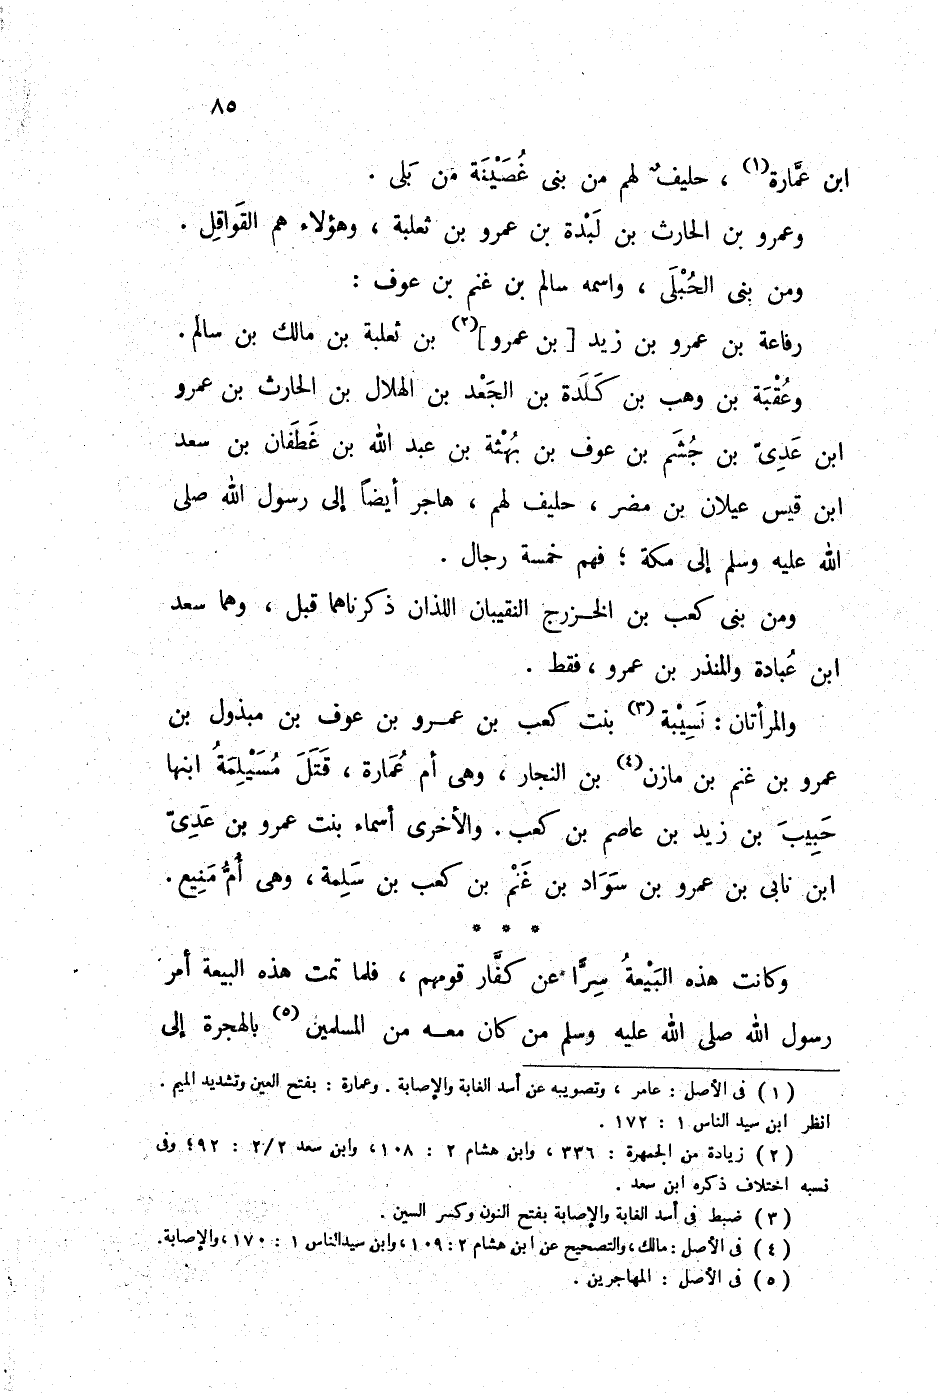 ٨٥
ابن عمَّارة(١) ، حليفٌ لهم من بنى غُصَيْنَة من بَلى .
وعمرو بن الحارث بن لَبْدة بن عمرو بن ثعلبة ، وهؤلاء هم القَواقِل .
ومن بنى الحُبْلَى ، واسمه سالم بن غنم بن عوف :
رفاعة بن عمرو بن زيد [ بن عمرو ](٢) بن ثعلبة بن مالك بن سالم .
وعُقْبَة بن وهب بن كَلَدة بن الجَعْد بن الهلال بن الحارث بن عمرو
ابن عَدِىّ بن جُشَم بن عوف بن بُهْثة بن عبد الله بن غَطَفان بن سعد
ابن قيس عيلان بن مضر ، حليف لهم ، هاجر أيضاً إلى رسول الله صلى
الله عليه وسلم إلى مكة ؛ فهم خمسة رجال .
ومن بنى كعب بن الخزرج النقيبان اللذان ذكرناهما قبل ، وهما سعد
ابن عُبادة والمنذر بن عمرو ، فقط .
والمرأتان : نَسِيْبة(٣) بنت كعب بن عمرو بن عوف بن مبذول بن
عمرو بن غنم بن مازن(٤) بن النجار ، وهى أم عُمَارة ، قَتَلَ مُسَيْلِمَةُ ابنها
حَبِيبَ بن زيد بن عاصم بن كعب . والأخرى أسماء بنت عمرو بن عَدِىّ
ابن نابى بن عمرو بن سَوَاد بن غَنْم بن كعب بن سَلِمة ، وهى أُمُّ مَنِيع .
* * *
وكانت هذه البَيْعةُ سِرًّا عن كفَّار قومهم ، فلما تمت هذه البيعة أمر
رسول الله صلى الله عليه وسلم من كان معه من المسلمين(٥) بالهجرة إلى
(١) فى الأصل : عامر ، وتصويبه عن أسد الغابة والإصابة . وعمارة : بفتح العين وتشديد الميم .
انظر ابن سيد الناس ١ : ١٧٢ .
(٢) زيادة من الجمهرة : ٣٣٦ ، وابن هشام ٢ : ١٠٨ ، وابن سعد ٢/٢ : ٩٢؛ وفى
نسبه اختلاف ذكره ابن سعد .
(٣) ضبط فى أسد الغابة والإصابة بفتح النون وكسر السين .
(٤) فى الأصل : مالك ، والتصحيح عن ابن هشام ٢ : ١٠٩ ، وابن سيد الناس ١ : ١٧٠ ، والإصابة .
(٥) فى الأصل : المهاجرين .